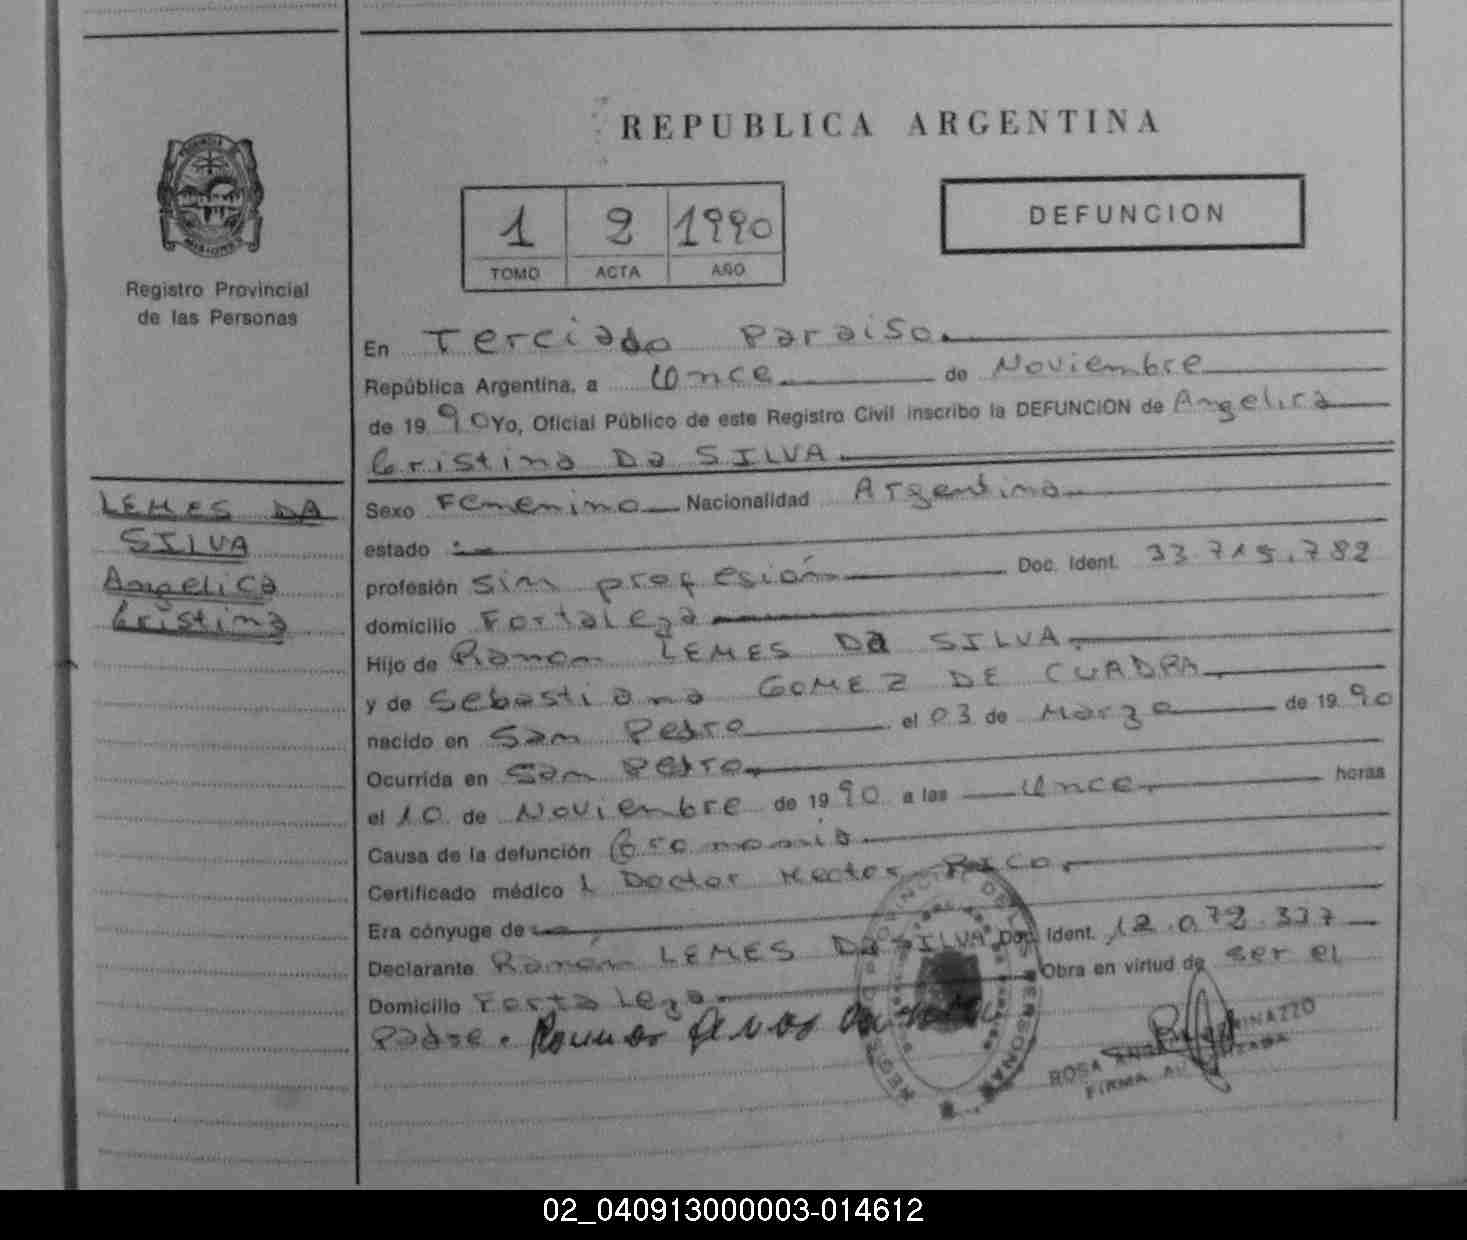 REPUBLICA ARGENTINA
1 2 1990
TOMO ACTA AÑO
DEFUNCION
PROVINCIA
MISIONES
Registro Provincial
de las Personas
LEMES DA
SILVA
Angelica
Cristina
En Terciado Paraiso.
República Argentina, a Once de Noviembre
de 19 90 Yo, Oficial Público de este Registro Civil inscribo la DEFUNCION de Angelica
Cristina Da SILVA.
Sexo Femenino Nacionalidad Argentina
estado
profesión Sin profesión Doc. Ident. 33.715.782
domicilio Fortaleza
Hijo de Ramon LEMES Da SILVA.
y de Sebastiana GOMEZ DE CUADRA.
nacido en San Pedro el 03 de Marzo de 19 90
Ocurrida en San Pedro.
el 10 de Noviembre de 19 90 a las Once. horas
Causa de la defunción
Certificado médico Doctor Hector
Era cónyuge de
Declarante Ramón LEMES Da SILVA Doc. Ident. 12.072.337
Domicilio Fortaleza. Obra en virtud de ser el
Padre.
ROSA
FIRMA
02_040913000003-014612